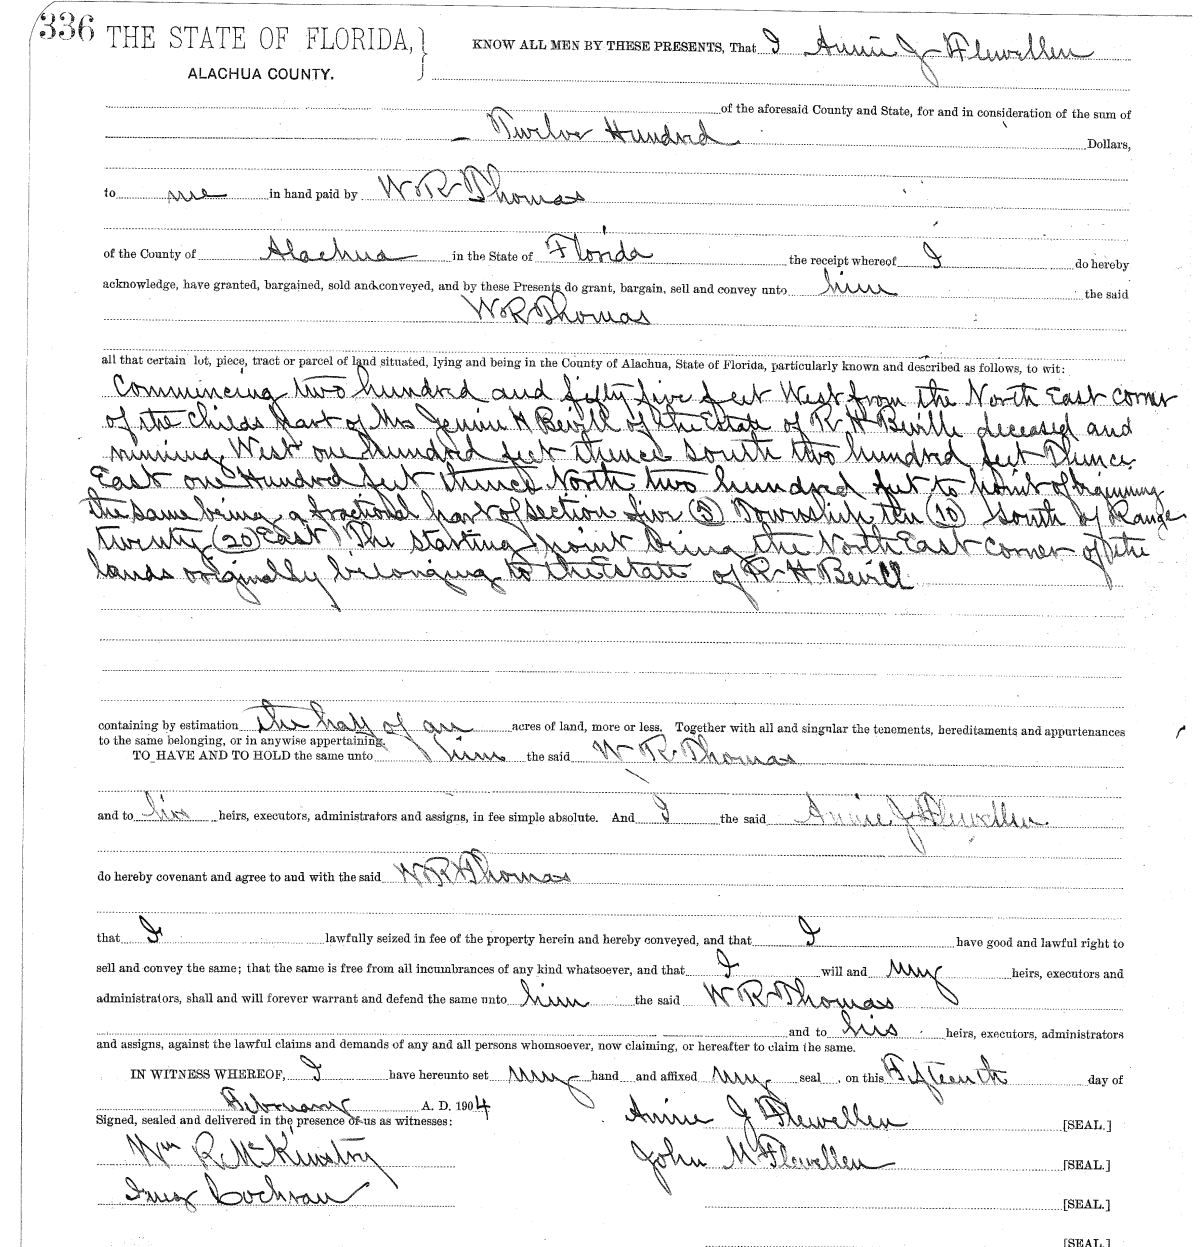 336 THE STATE OF FLORIDA, KNOW ALL MEN BY THESE PRESENTS, That I Annie J Flewellen
ALACHUA COUNTY.
of the aforesaid County and State, for and in consideration of the sum of
Twelve Hundred Dollars,
to me in hand paid by W. R. Thomas
of the County of Alachua in the State of Florida the receipt whereof I do hereby
acknowledge, have granted, bargained, sold and conveyed, and by these Presents do grant, bargain, sell and convey unto him the said
W R Thomas
all that certain lot, piece, tract or parcel of land situated, lying and being in the County of Alachua, State of Florida, particularly known and described as follows, to wit:
Commencing two hundred and fifty five feet West from the North East corner
of the Childs part of Mrs Jennie H Bevill of the Estate of R H Beville deceased and
running West one hundred feet thence South two hundred feet Thence
East one Hundred feet thence North two hundred feet to point of beginning
the same being a fractional part of section five (5) Township ten (10) South of Range
twenty (20) East The starting point being the North East corner of the
lands originally belonging to the Estate of R H Bevill
containing by estimation the half of an acres of land, more or less. Together with all and singular the tenements, hereditaments and appurtenances
to the same belonging, or in anywise appertaining.
TO HAVE AND TO HOLD the same unto him the said W R Thomas
and to his heirs, executors, administrators and assigns, in fee simple absolute. And I the said Annie J Flewellen
do hereby covenant and agree to and with the said W R Thomas
that I lawfully seized in fee of the property herein and hereby conveyed, and that I have good and lawful right to
sell and convey the same; that the same is free from all incumbrances of any kind whatsoever, and that I will and my heirs, executors and
administrators, shall and will forever warrant and defend the same unto him the said W R Thomas
and to his heirs, executors, administrators
and assigns, against the lawful claims and demands of any and all persons whomsoever, now claiming, or hereafter to claim the same.
IN WITNESS WHEREOF, I have hereunto set my hand and affixed my seal, on this Fifteenth day of
February A. D. 1904
Signed, sealed and delivered in the presence of us as witnesses: Annie J Flewellen [SEAL.]
Wm R. McKinstry John M Flewellen [SEAL.]
Inez Cochran [SEAL.]
[SEAL.]